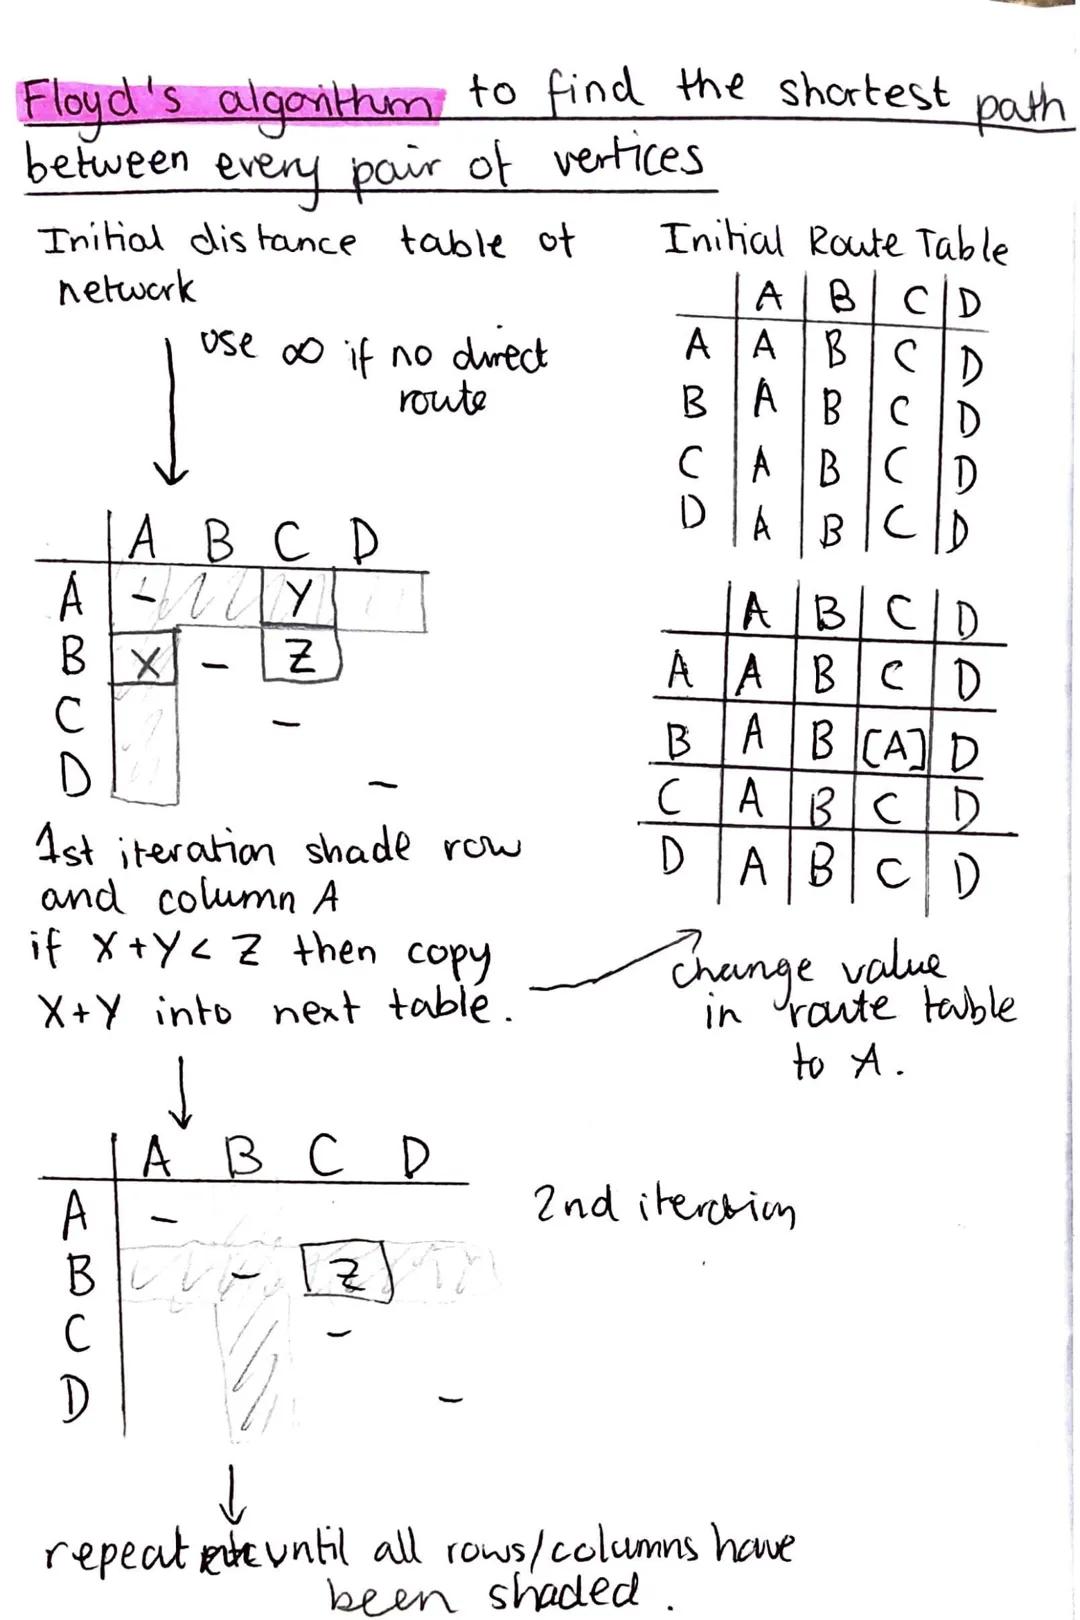 Floyd's algorithm to find the shortest path
between every pair of vertices
Initial distance table of
network
use ∞ if no direct
route
A B C D
A - Y
B X - Z
C -
D -
1st iteration shade row
and column A
if X+Y< Z then copy
X+Y into next table.
Initial Route Table
A B C D
A A B C D
B A B C D
C A B C D
D A B C D
A B C D
A A B C D
B A B [A] D
C A B C D
D A B C D
change value
in route table
to A.
A B C D
A -
B - Z
C -
D -
2nd iteration
repeat until all rows/columns have
been shaded.